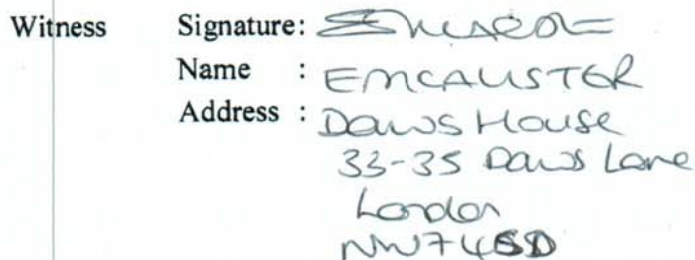 Witness Signature:
Name : EMCALISTER
Address : Daws House
33-35 Daws Lane
London
NW7 4SD